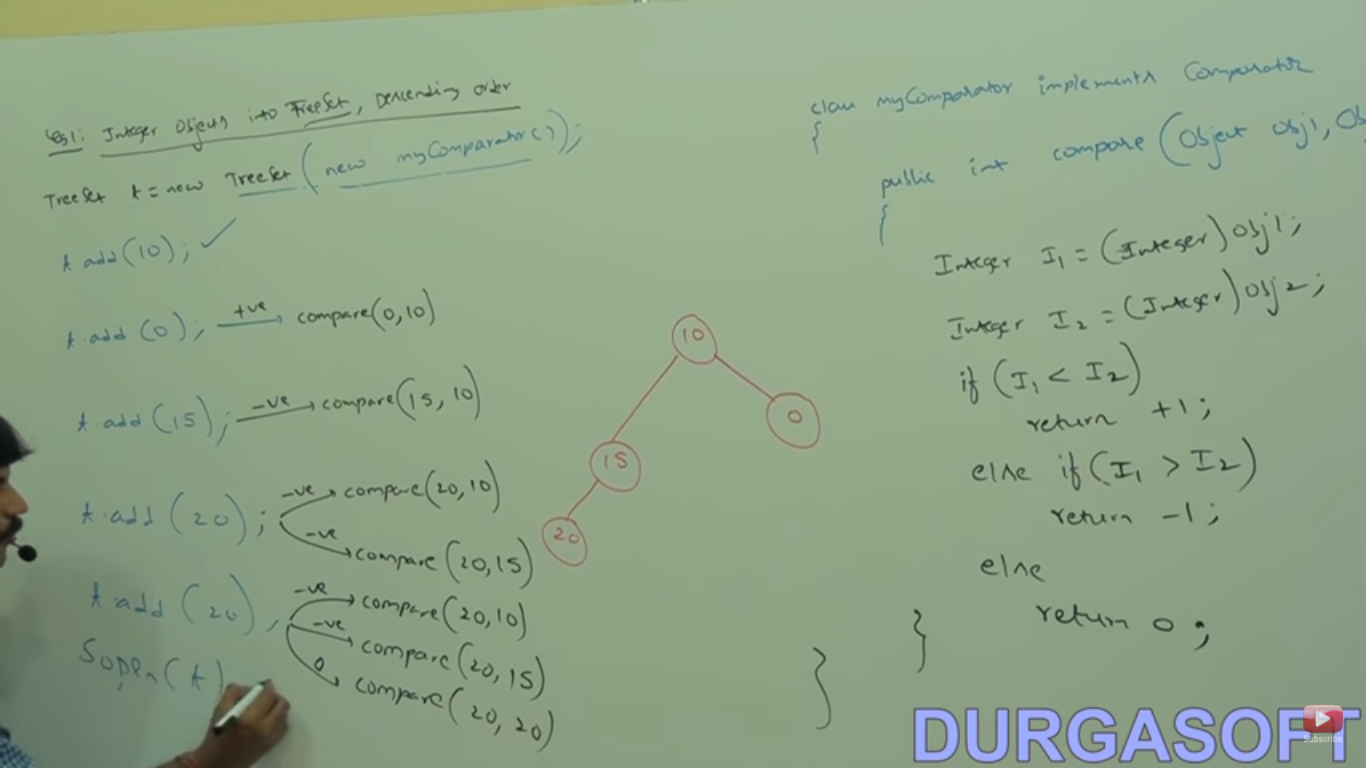 Eg1: Integer Objects into TreeSet, Descending order
TreeSet t = new TreeSet(new myComparator());
t.add(10); ✓
t.add(0); +ve compare(0,10)
t.add(15); -ve compare(15,10)
t.add(20); -ve compare(20,10)
-ve compare(20,15)
t.add(20); -ve compare(20,10)
-ve compare(20,15)
0 compare(20,20)
Sopln(t)
10
0
15
20
class myComparator implements Comparator
{
public int compare(Object obj1, Ob
{
Integer I1 = (Integer)obj1;
Integer I2 = (Integer)obj2;
if (I1 < I2)
return +1;
else if (I1 > I2)
return -1;
else
return 0;
}
}
DURGASOFT
Subscribe